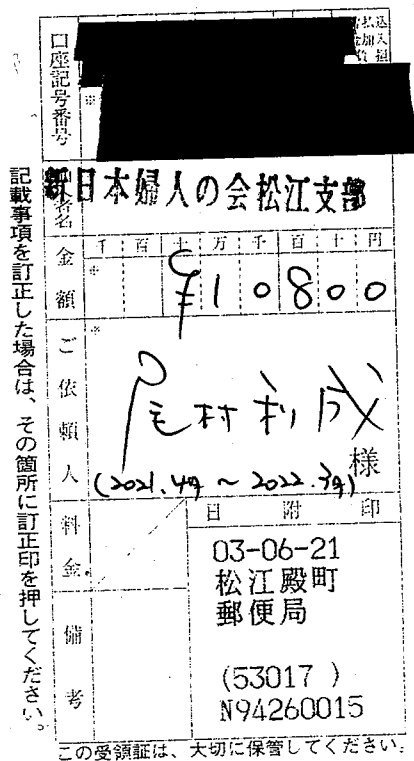 口座記号番号
※
新日本婦人の会松江支部
金額
千 百 十 万 千 百 十 円
※
¥10800
ご依頼人
※
尾村利成
様
(2021.4月 ~ 2022.3月)
料金
日 附 印
03-06-21
松江殿町
郵便局
(53017 )
N94260015
備考
記載事項を訂正した場合は、その箇所に訂正印を押してください。
この受領証は、大切に保管してください。